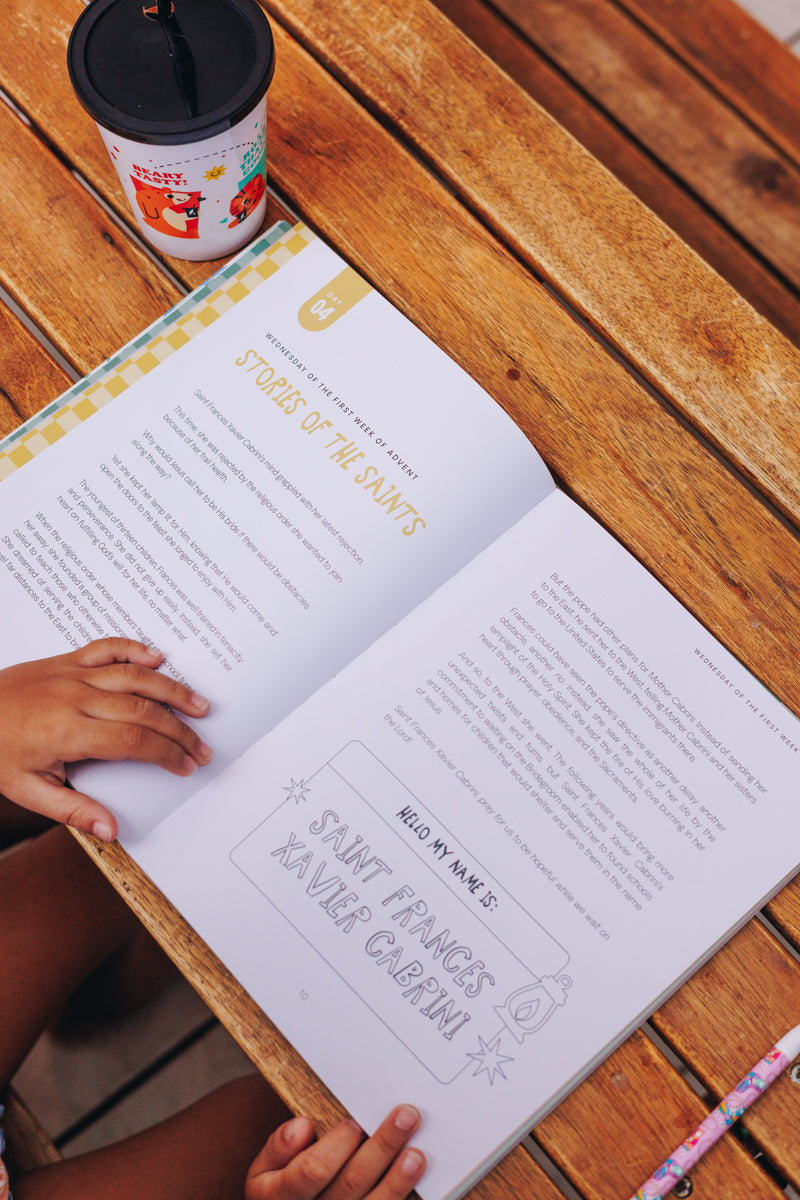 BEARY
TASTY!
DAY
04
WEDNESDAY OF THE FIRST WEEK OF ADVENT
STORIES OF THE SAINTS
Saint Frances Xavier Cabrini's mind grappled with her latest rejection.
This time, she was rejected by the religious order she wanted to join
because of her frail health.
Why would Jesus call her to be His bride if there would be obstacles
along the way?
Yet she kept her lamp lit for Him, knowing that He would come and
open the doors to the feast she longed to enjoy with him.
The youngest of thirteen children, Frances was well trained in tenacity
and perseverance. She did not give up easily. Instead, she set her
heart on fulfilling God's will for her life, no matter what.
When the religious order whose members taught
her away, she founded a group of mission
called to teach those who otherwise
She dreamed of serving the children
far distances to the East to
WEDNESDAY OF THE FIRST WEEK
But the pope had other plans for Mother Cabrini. Instead of sending her
to the East, he sent her to the West, telling Mother Cabrini and her sisters
to go to the United States to serve the immigrants there.
Frances could have seen the pope's directive as another delay, another
obstacle, another no. Instead, she saw the whole of her life by the
lamplight of the Holy Spirit. She kept the fire of His love burning in her
heart through prayer, obedience, and the Sacraments.
And so, to the West she went. The following years would bring more
unexpected twists and turns, but Saint Frances Xavier Cabrini's
commitment to waiting on the Bridegroom enabled her to found schools
and homes for children that would shelter and serve them in the name
of Jesus.
Saint Frances Xavier Cabrini, pray for us to be hopeful while we wait on
the Lord!
HELLO MY NAME IS:
SAINT FRANCES
XAVIER CABRINI
10